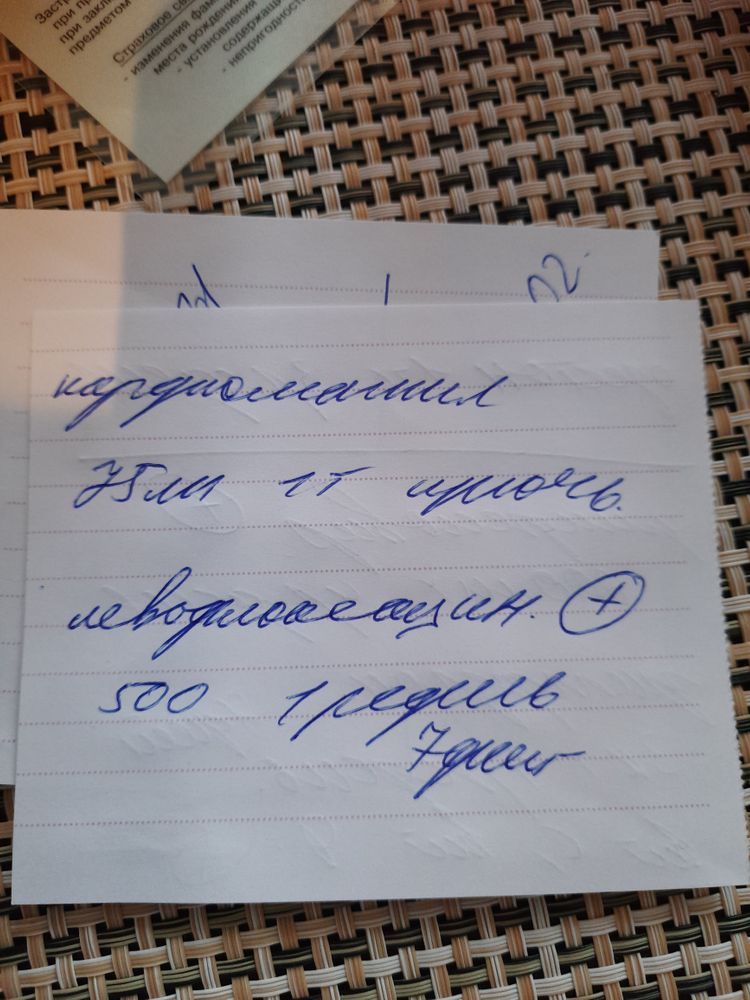 Застр
при пр
при заклю
предметом
Страховое св
- изменения фам
места рождени
- установления
содержащи
- непригодност
12.
кардиомагнил
75мг 1т
левофлоксацин. +
500 1р в день
7 дней